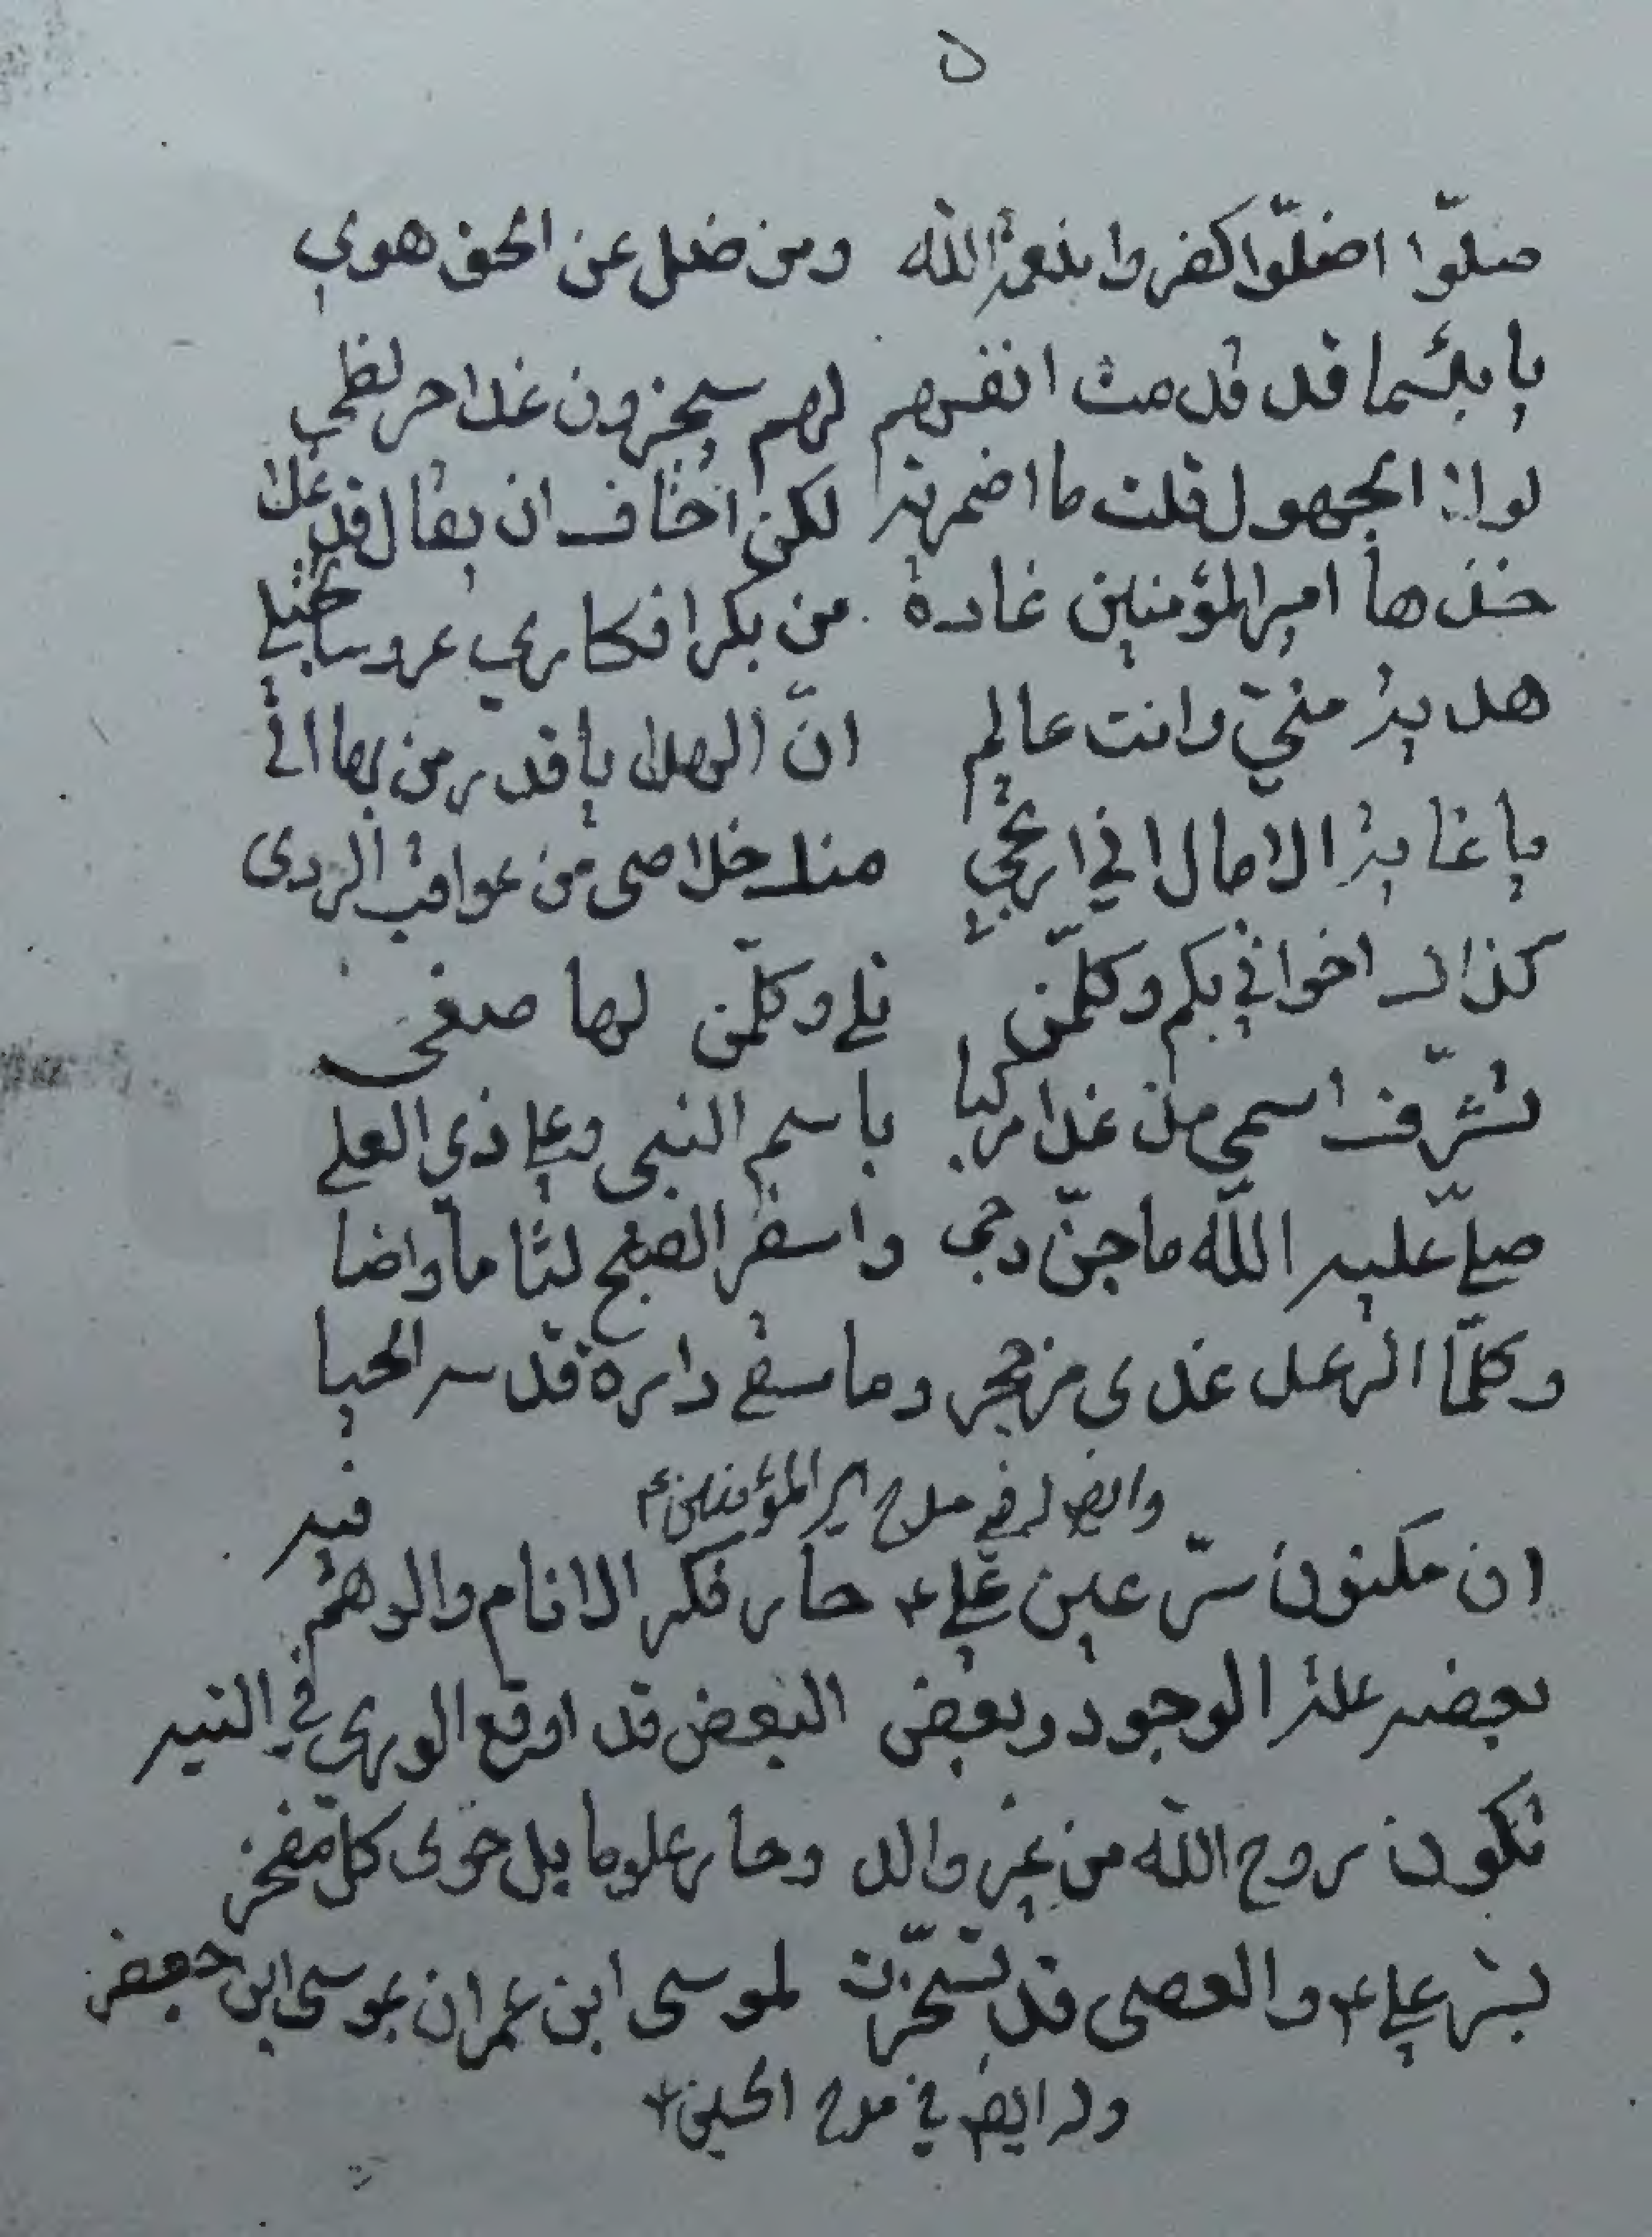 ٥
ضلّوا اضلّوا كفروا بنعمة الله ومن ضل عن الحق هوي
يا بئسما قد قدمت انفسهم لهم سيجزون غدا حر لظي
لولا الجهول قلت ما اضمرته لكن اخاف ان يقال قد غلا
خذها امير المؤمنين غادة من بكر افكاري عروسا تجتلي
هدية منّي وانت عالم انّ الهدايا قدر من بها اتي
يا غاية الامال اني ارتجي منك خلاصي من عواقب الردى
كذاك اخواني بكم وكلمن تلي وكلّمن لها صغى
تشرّف اسمي مذ غدا مركبا باسم النبي وعلي ذي العلي
صلّي عليه الله ما جنّ دجي واسفر الصبح لثاما واضا
وكلّما الرعد غدى مزمجر وما سقي دارة قدس الحيا
وايضا له في مدح امير المؤمنين ع
ان مكنون سرّ عين علي ع حار فكر الانام والوهم فيه
بعضه علة الوجود وبعض البعض قد اوقع الوري في التيه
تكون روح الله من غير والد وحار علوما بل حوى كل مفخر
بسر علي ع والعصى قد تسخّرت لموسى ابن عمران بموسى ابن جعفر
وله ايضا في مدح الحسين ع